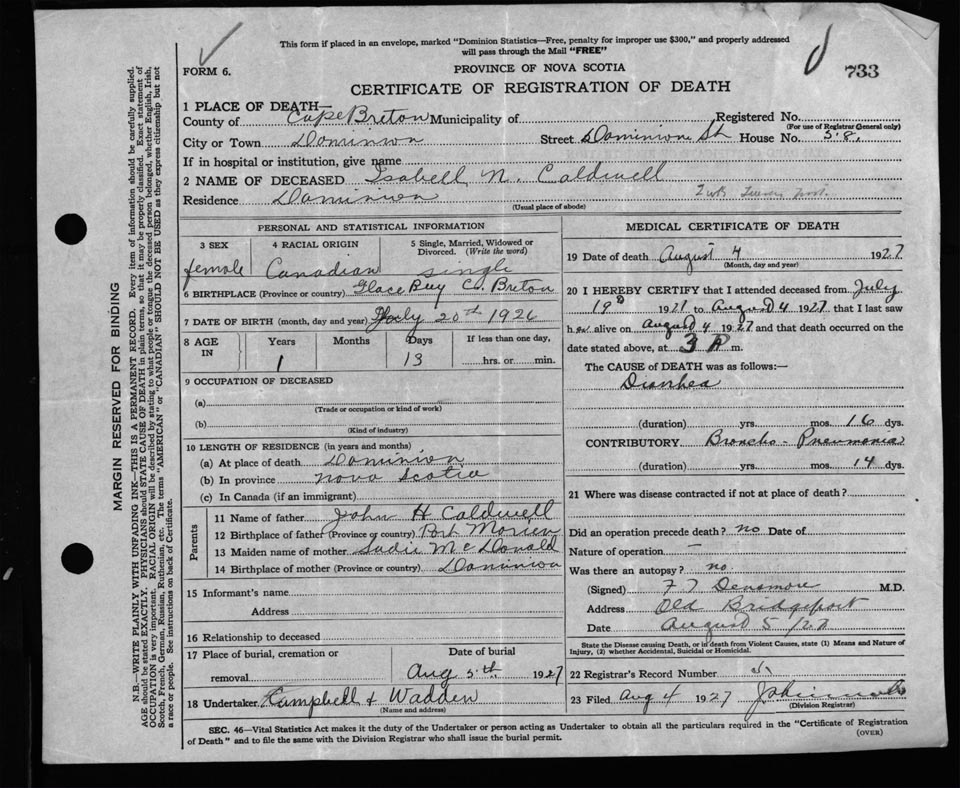 This form if placed in an envelope, marked "Dominion Statistics—Free, penalty for improper use $300," and properly addressed
will pass through the Mail "FREE"
FORM 6.
PROVINCE OF NOVA SCOTIA
733
CERTIFICATE OF REGISTRATION OF DEATH
1 PLACE OF DEATH—
County of Cape Breton Municipality of Registered No.
(For use of Registrar General only)
City or Town Dominion Street Dominion St House No. 58
If in hospital or institution, give name
2 NAME OF DECEASED Isabell N. Caldwell
Residence Dominion
(Usual place of abode)
PERSONAL AND STATISTICAL INFORMATION
3 SEX 4 RACIAL ORIGIN 5 Single, Married, Widowed or Divorced. (Write the word)
female Canadian single
6 BIRTHPLACE (Province or country) Glace Bay C. Breton
7 DATE OF BIRTH (month, day and year) July 20th 1926
8 AGE IN Years Months Days If less than one day,
1 13 hrs. or min.
9 OCCUPATION OF DECEASED
(a)
(Trade or occupation or kind of work)
(b)
(Kind of industry)
10 LENGTH OF RESIDENCE (in years and months)
(a) At place of death Dominion
(b) In province Nova Scotia
(c) In Canada (if an immigrant)
Parents
11 Name of father John H Caldwell
12 Birthplace of father (Province or country) Port Morien
13 Maiden name of mother Sadie McDonald
14 Birthplace of mother (Province or country) Dominion
15 Informant's name
Address
16 Relationship to deceased
17 Place of burial, cremation or removal Date of burial
Aug 5th 1927
18 Undertaker Campbell & Wadden
(Name and address)
MEDICAL CERTIFICATE OF DEATH
19 Date of death August 4 1927
(Month, day and year)
20 I HEREBY CERTIFY that I attended deceased from July
19 1927 to August 4 1927 that I last saw
h er alive on August 4 1927 and that death occurred on the
date stated above, at 3 P m.
The CAUSE of DEATH was as follows:—
Diarrhea
(duration) yrs. mos. 16 dys.
CONTRIBUTORY Broncho-Pneumonia
(duration) yrs. mos. 14 dys.
21 Where was disease contracted if not at place of death?
Did an operation precede death? no Date of
Nature of operation —
Was there an autopsy? no.
(Signed) Densmore M.D.
Address Old Bridgeport
Date August 5/27
State the Disease causing Death, or in death from Violent Causes, state (1) Means and Nature of
Injury, (2) whether Accidental, Suicidal or Homicidal.
22 Registrar's Record Number
23 Filed Aug 4 1927
(Division Registrar)
SEC. 46—Vital Statistics Act makes it the duty of the Undertaker or person acting as Undertaker to obtain all the particulars required in the "Certificate of Registration
of Death" and to file the same with the Division Registrar who shall issue the burial permit.
(OVER)
MARGIN RESERVED FOR BINDING
N.B.—WRITE PLAINLY WITH UNFADING INK—THIS IS A PERMANENT RECORD. Every item of information should be carefully supplied.
AGE should be stated EXACTLY. PHYSICIANS should STATE CAUSE OF DEATH in plain terms, so that it may be properly classified. Exact statement of
OCCUPATION is very important. RACIAL ORIGIN will be described by stating to what people or tongue the deceased person belonged, whether English, Irish,
Scotch, French, German, Russian, Ruthenian, etc. The terms "AMERICAN" or "CANADIAN" SHOULD NOT BE USED as they express citizenship but not
a race or people. See instructions on back of Certificate.